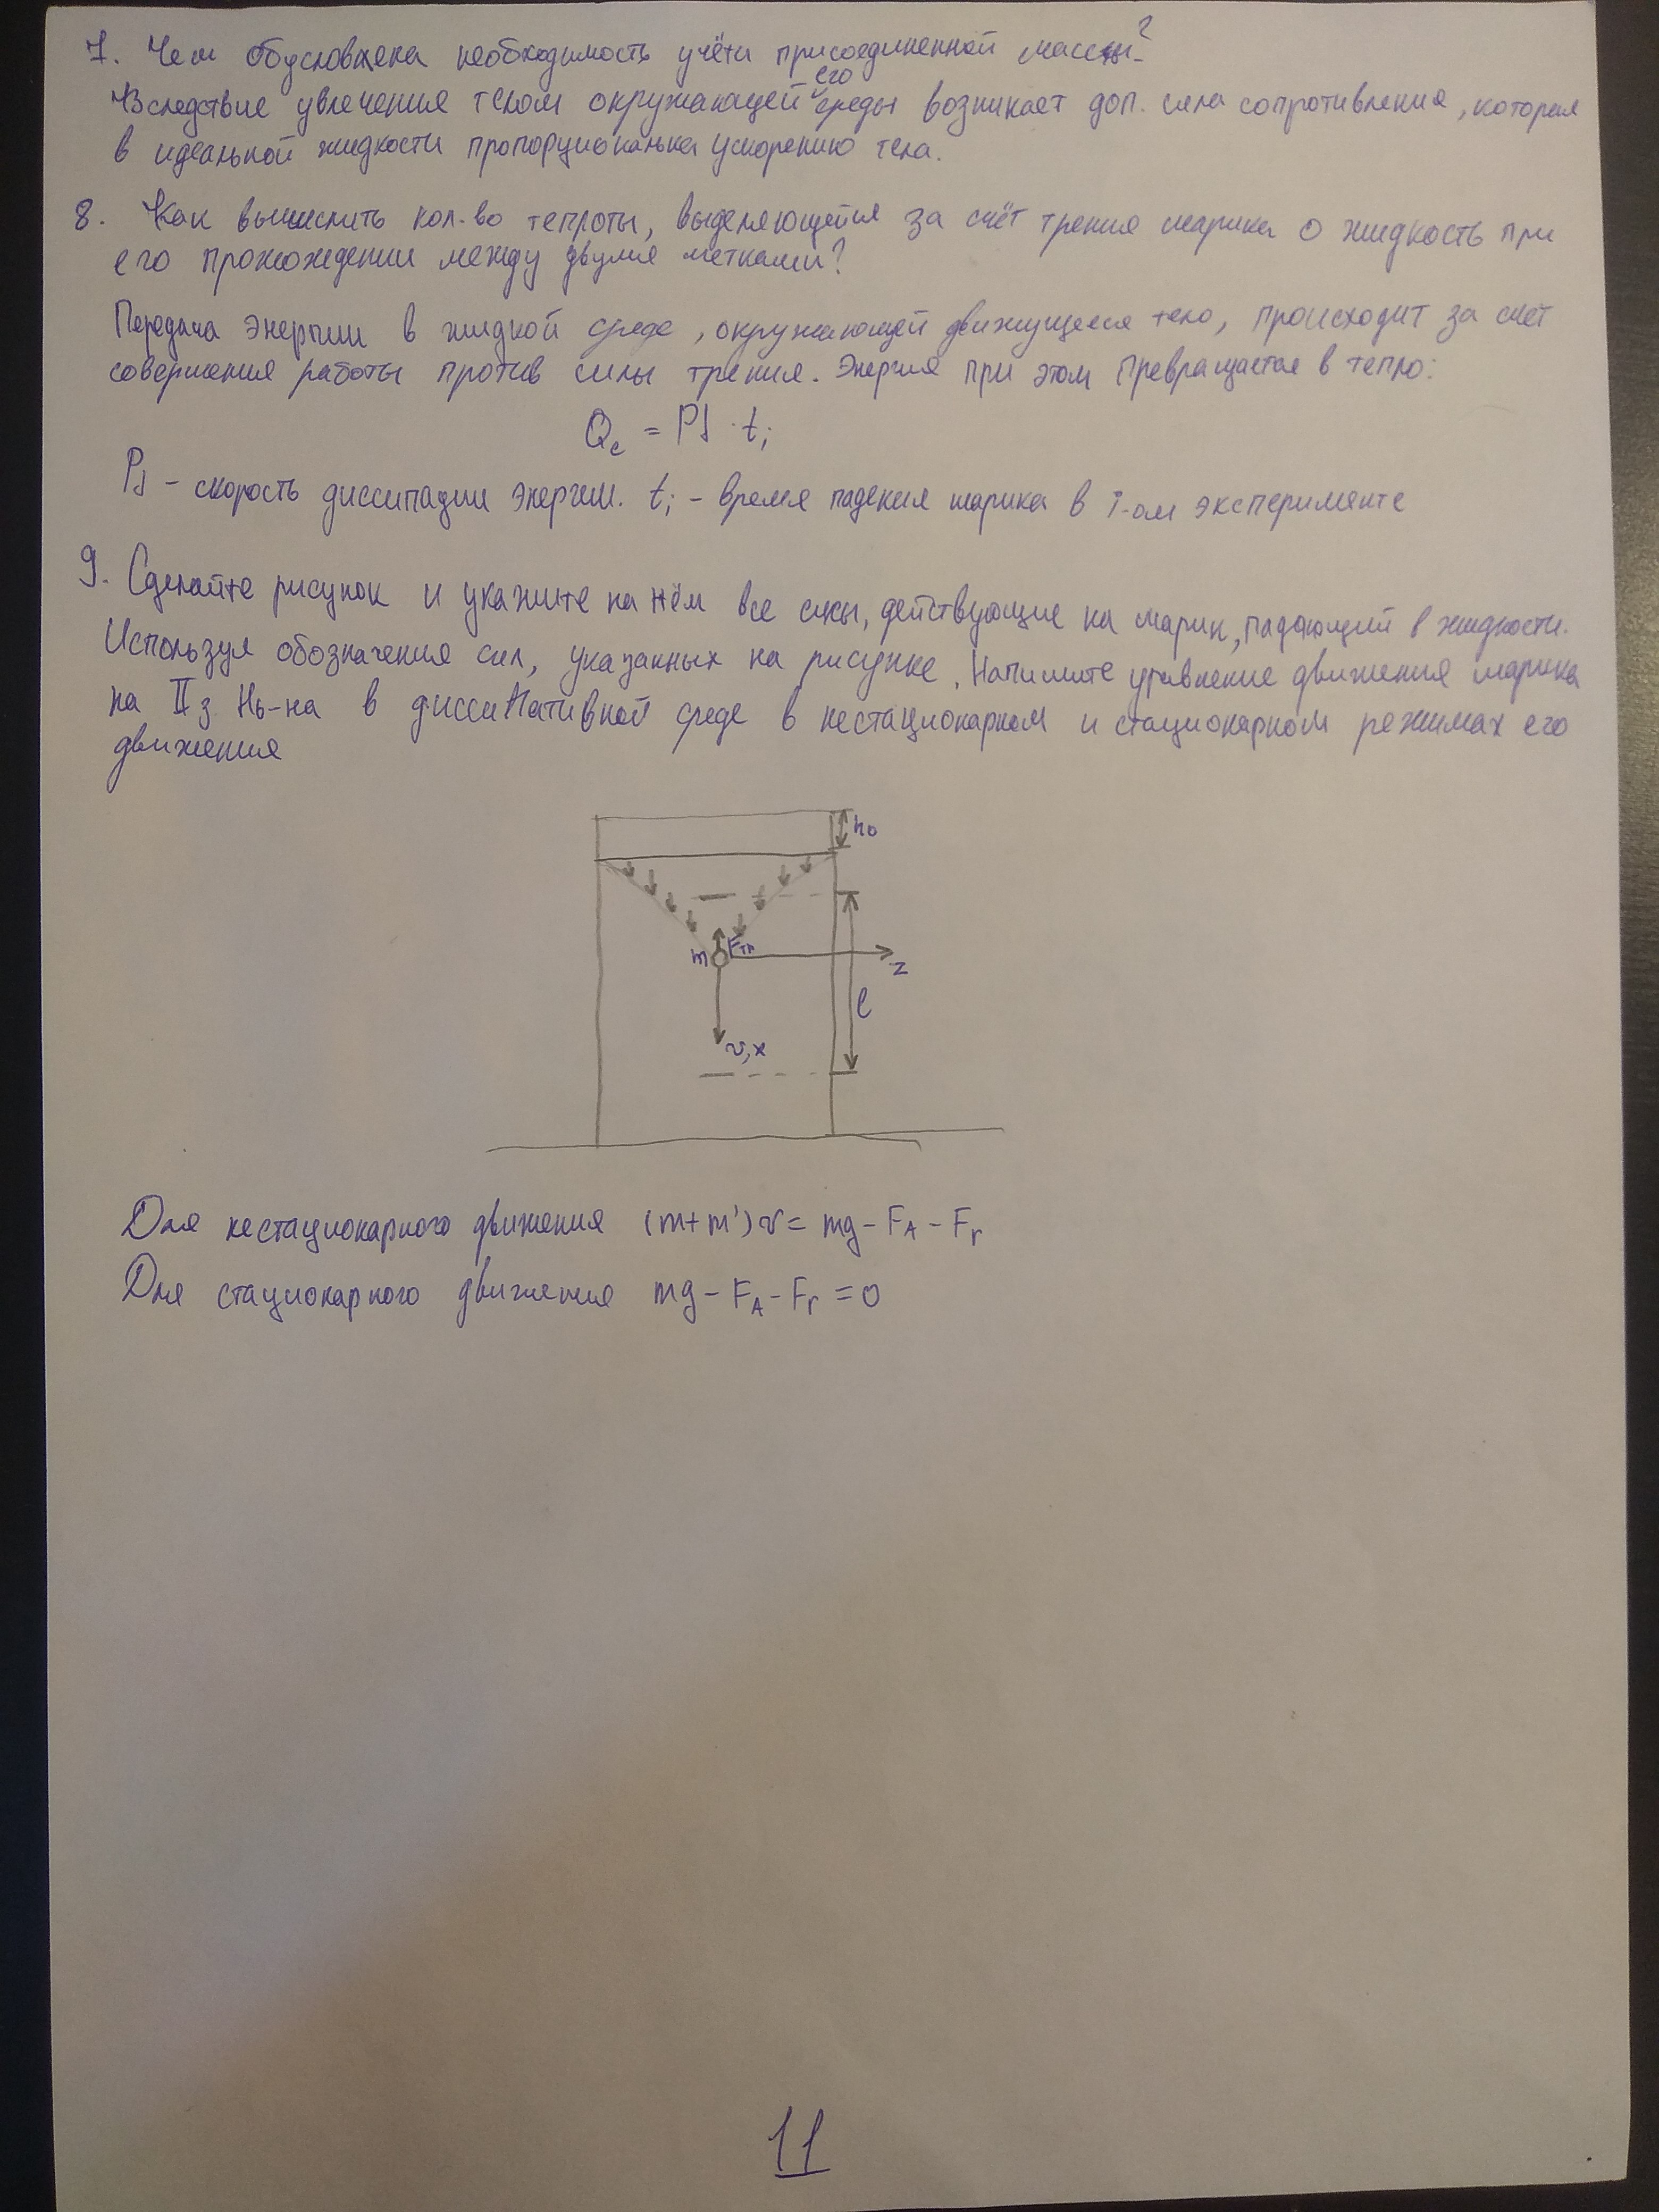 7. Чем обусловлена необходимость учёта присоединенной массы?
Вследствие увлечения телом окружающей его среды возникает доп. сила сопротивления, которая
в идеальной жидкости пропорциональна ускорению тела.
8. Как вычислить кол-во теплоты, выделяющейся за счёт трения шарика о жидкость при
его прохождении между двумя метками?
Передача энергии в жидкой среде, окружающей движущееся тело, происходит за счет
совершения работы против силы трения. Энергия при этом превращается в тепло:
Qc = Pd · ti
Pd – скорость диссипации энергии. ti – время падения шарика в i-ом эксперименте
9. Сделайте рисунок и укажите на нём все силы, действующие на шарик, падающий в жидкости.
Используя обозначения сил, указанных на рисунке. Напишите уравнение движения шарика
на II з. Нь-на в диссипативной среде в нестационарном и стационарном режимах его
движения
h0
m Fтр
z
l
v, x
Для нестационарного движения (m+m')v = mg – FA – Fr
Для стационарного движения mg – FA – Fr = 0
11